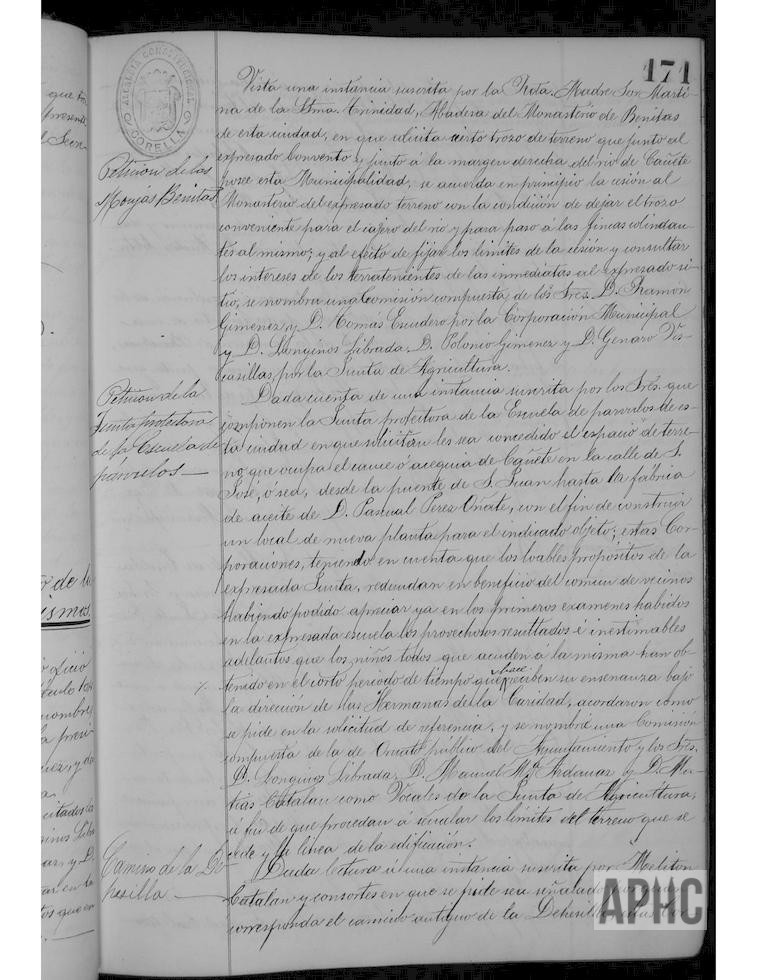 171
ALCALDIA CONSTITUCIONAL
CORELLA
Vista una instancia suscrita por la Rvda. Madre Sor Marti-
na de la Stma. Trinidad, Abadesa del Monasterio de Benitas
de esta ciudad, en que solicita cierto trozo de terreno que junto al
expresado Convento y junto á la margen derecha del rio de Cañete
posee esta Municipalidad, se acuerda en principio la cesión al
Monasterio del expresado terreno con la condición de dejar el trozo
conveniente para el cajero del rio y para paso a las fincas colindan-
tes al mismo; y al efecto de fijar los limites de la cesión y consultar
los intereses de los terratenientes de las inmediatas al expresado si-
tio, se nombra una Comisión compuesta de los Sres. D. Ramón
Gimenez y D. Tomás Escudero por la Corporación Municipal
y D. Longinos Librada, D. Polonio Gimenez y D. Genaro Ves-
casillas, por la Junta de Agricultura.
Petición de las
Monjas Benitas
Dada cuenta de una instancia suscrita por los Sres. que
componen la Junta protectora de la Escuela de parvulos de es-
ta ciudad en que solicitan les sea concedido el espacio de terre-
no que ocupa el cauce ó acequia de Cañete en la calle de S.
José, ó sea, desde la puente de S. Juan hasta la fábrica
de aceite de D. Pascual Perez Oñate, con el fin de construir
un local de nueva planta para el indicado objeto; estas Cor-
poraciones, teniendo en cuenta que los loables propósitos de la
expresada Junta, redundan en beneficio del comun de vecinos
habiendo podido apreciar ya en los primeros examenes habidos
en la expresada escuela los provechosos resultados é inestimables
adelantos que los niños todos que acuden á la misma han ob-
tenido en el corto periodo de tiempo que hace reciben su enseñanza bajo
la dirección de las Hermanas de la Caridad, acordaron como
se pide en la solicitud de referencia, y se nombra una Comisión
compuesta de la de Ornato público del Ayuntamiento y los Sres.
D. Longinos Librada, D. Manuel Mª Ardanaz y D. Ma-
tias Catalan como Vocales de la Junta de Agricultura,
á fin de que procedan á señalar los limites del terreno que se
cede y la linea de la edificación.
Petición de la
Junta protectora
de la Escuela de
párvulos
Dada lectura á una instancia suscrita por Meliton
Catalan y consortes en que se pide sea señalado
corresponda el camino antiguo de la Dehesilla
Camino de la De-
hesilla
APHC